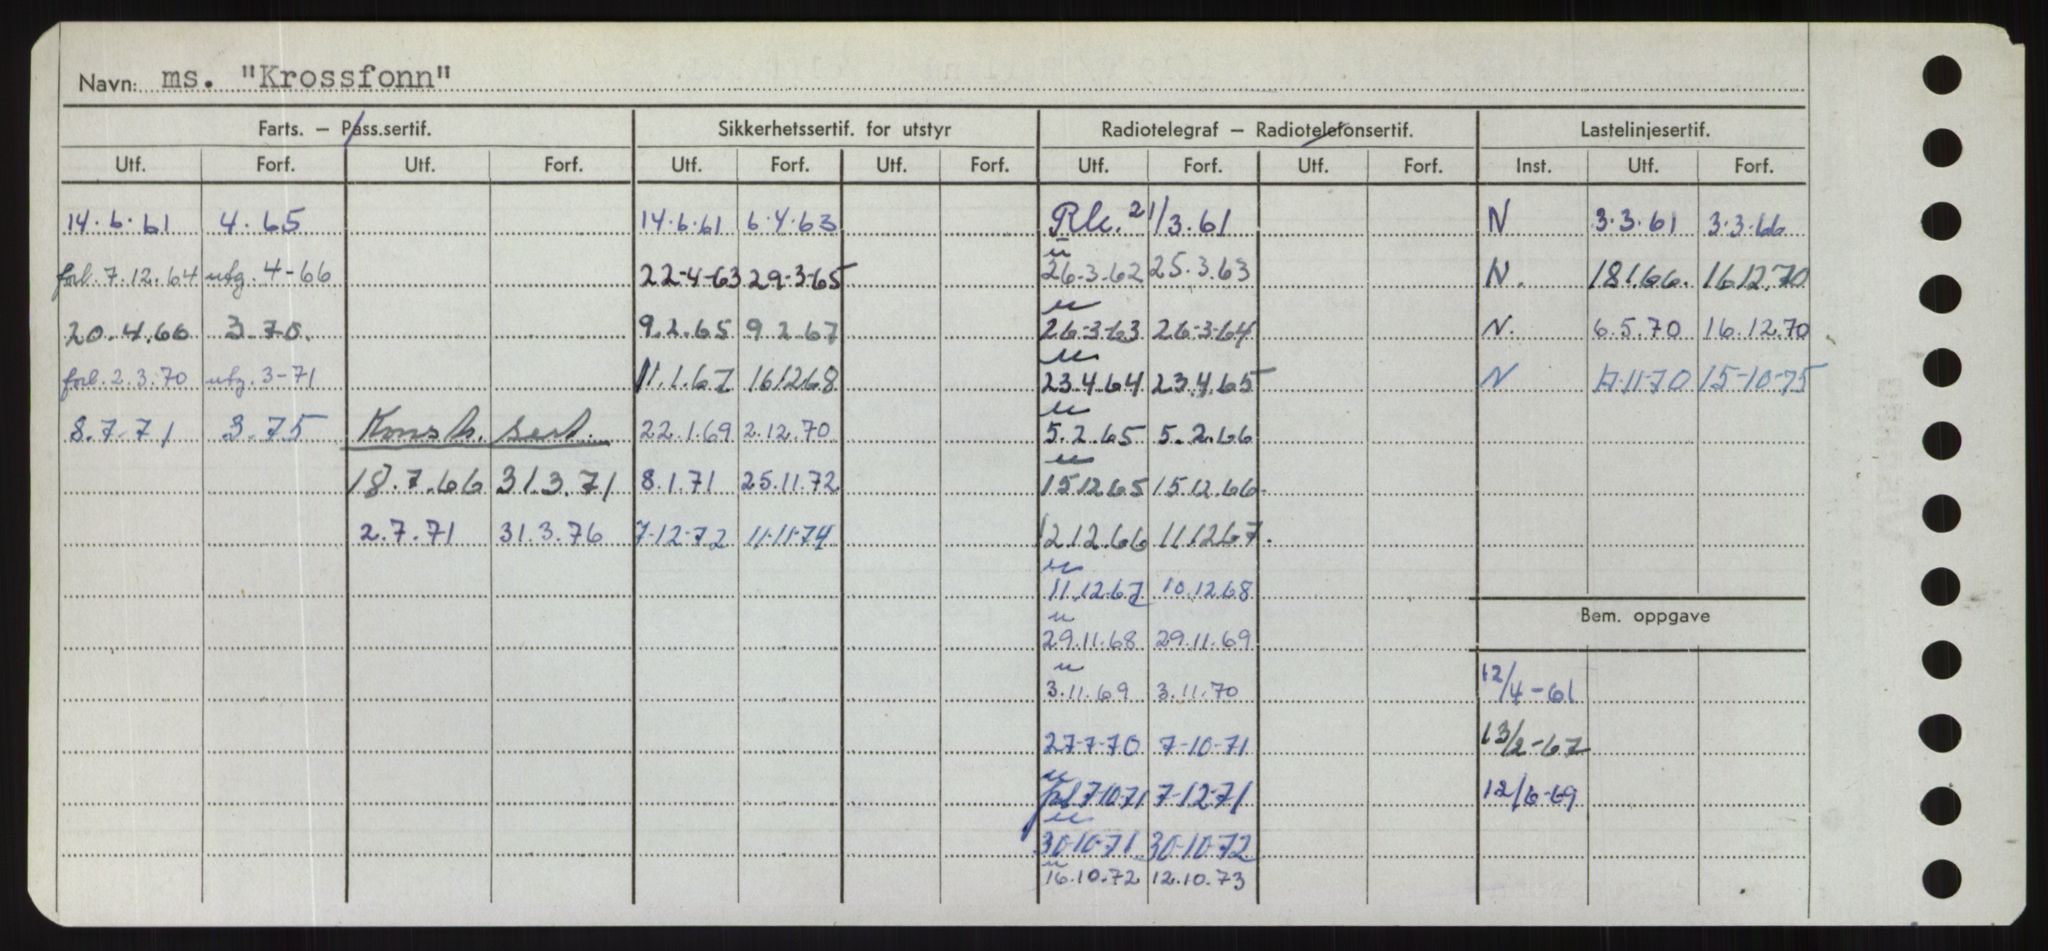 Navn: ms. "Krossfonn"
Farts. – Pass.sertif. Sikkerhetssertif. for utstyr Radiotelegraf – Radiotelefonsertif. Lastelinjesertif.
Utf. Forf. Utf. Forf. Utf. Forf. Utf. Forf. Utf. Forf. Utf. Forf. Inst. Utf. Forf.
14.6.61 4.65 14.6.61 6.4.63 Rk. 21/3.61 N 3.3.61 3.3.66
forl. 7.12.64 utg. 4-66 22-4-63 29-3-65 " 26-3.62 25.3.63 N. 18.1.66. 16.12.70
20.4.66 3.70. 9.2.65 9.2.67 " 26-3-63 26-3-64 N. 6.5.70 16.12.70
forl. 2.3.70 utg. 3-71 11.1.67 16.12.68 " 23.4.64 23.4.65 N 17-11-70 15-10-75
8.7.71 3.75 Konst. sert. 22.1.69 2.12.70 " 5.2.65 5.2.66
18.7.66 31.3.71 8.1.71 25.11.72 " 15.12.65 15.12.66
2.7.71 31.3.76 7-12-72 11-11-74 12.12.66 11.12.67.
" 11.12.67 10.12.68
Bem. oppgave
" 29.11.68 29.11.69
" 3.11.69 3.11.70 12/4-61
27-7-70 7-10-71 13/2-67
" forl 7-10-71 7-12-71 12/6-69
" 30-10-71 30-10-72
" 16.10.72 12.10.73